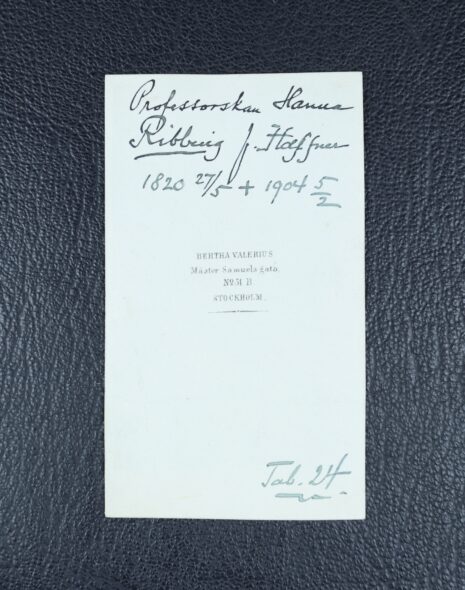 Professorskan Hanna
Ribbing f. Hæffner
1820 27/5 + 1904 5/2
BERTHA VALERIUS
Mäster Samuels gata.
No 51 B
STOCKHOLM.
Tab. 24